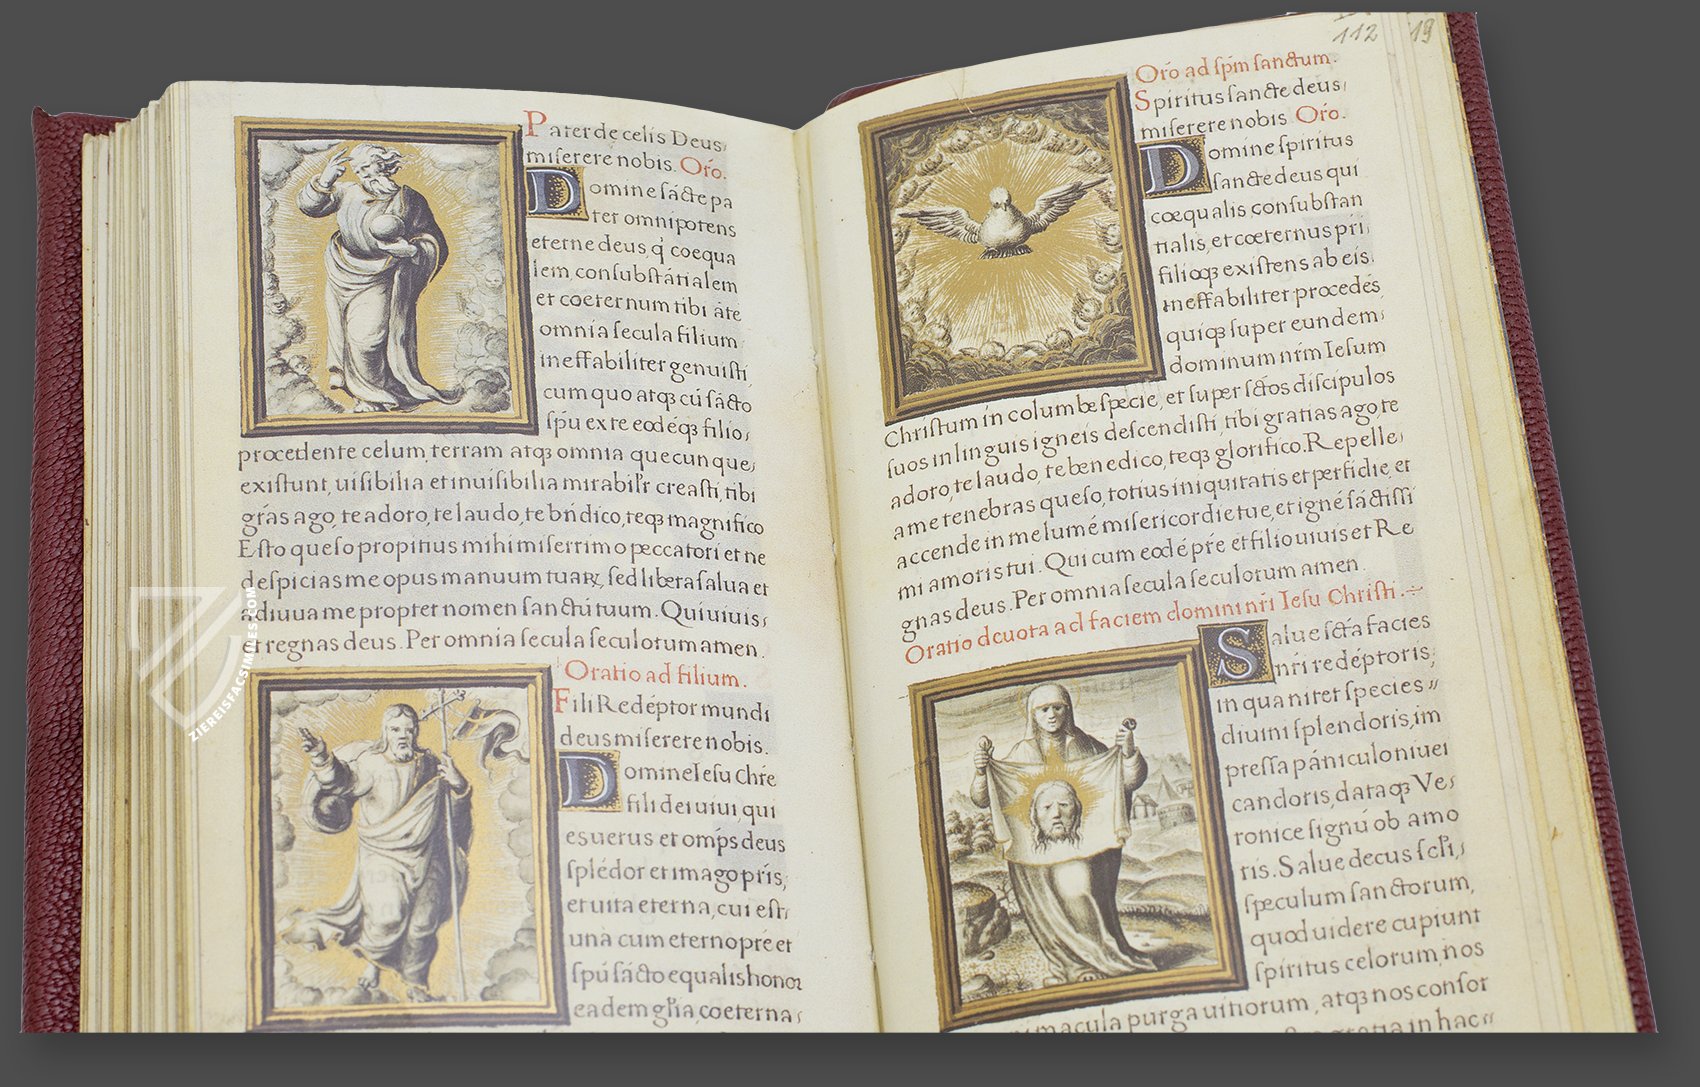 Pater de celis Deus,
miserere nobis. Oro.
Domine sācte pa
ter omnipotens
eterne deus, q̇ coequa
lem, consubstātialem
et coeternum tibi āte
omnia secula filium
ineffabiliter genuisti
cum quo atqȝ cū sācto
spū ex te eodēqȝ filio,
procedente celum, terram atqȝ omnia quecunque,
existunt, uisibilia et inuisibilia mirabilr creasti, tibi
grās ago, te adoro, te laudo, te bñdico, teqȝ magnifico
Esto queso propitius mihi miserrimo peccatori et ne
despicias me opus manuum tuaꝝ, sed libera salua et
adiuua me propter nomen sanctū tuum. Qui uiuis,
et regnas deus. Per omnia secula seculorum amen.
Oratio ad filium.
Fili Redēptor mundi
deus miserere nobis.
Domine Iesu chre
fili dei uiui, qui
es uerus et omps deus
splēdor et imago pris,
et uita eterna, cui est,
una cum eterno pre et
spū sācto equalis honor
eadem glia, coeterna,
112 19
Oro ad spm sanctum.
Spiritus sancte deus,
miserere nobis Oro.
Domine spiritus
sancte deus qui
coequalis consubstan
tialis, et coeternus pri
filioqȝ existens ab eis,
ineffabiliter procedēs
quiqȝ super eundem,
dominum nrm Iesum
Christum in columbe specie, et super sctos discipulos
suos in linguis igneis descendisti, tibi gratias ago te
adoro, te laudo, te benedico, teqȝ glorifico. Repelle,
a me tenebras queso, totius iniquitatis et perfidie, et
accende in me lumē misericordie tue, et ignē sāctissi
mi amoris tui. Qui cum eodē pre et filio uiuis et Re
gnas deus. Per omnia secula seculorum amen.
Oratio deuota ad faciem domini nri Iesu Christi.
Salue scta facies
nri redēptoris,
in qua nitet species
diuini splendoris, im
pressa pāniculo niuei
candoris, dataqȝ Ve,
ronice signū ob amo
ris. Salue decus scli,
speculum sanctorum,
quod uidere cupiunt
spiritus celorum, nos
macula purga uitiorum, atqȝ nos consor
gratia in hac
ZIEREISFACSIMILES.COM